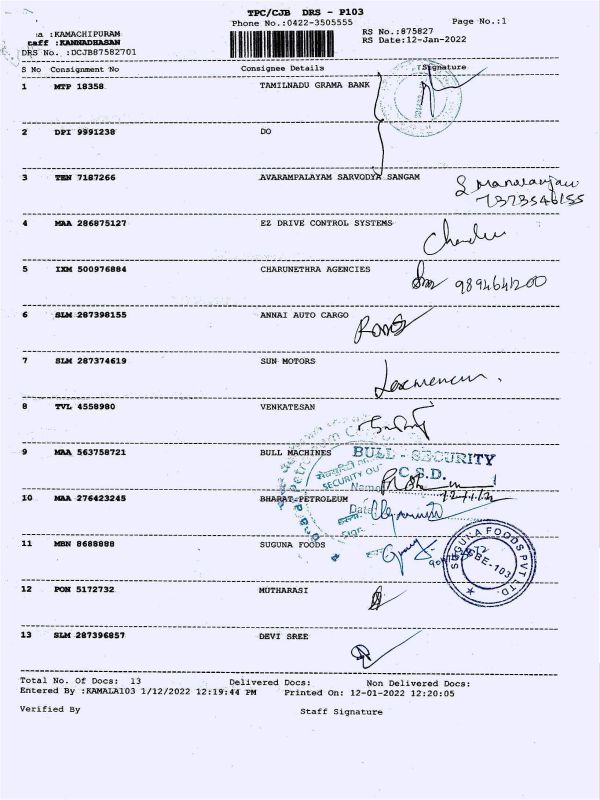 TPC/CJB DRS - P103
Phone No.:0422-3505555
Page No.:1
a :KAMACHIPURAM
taff :KANNADHASAN
DRS No. :DCJB87582701
RS No.:875827
RS Date:12-Jan-2022
S No Consignment No Consignee Details Signature
1 MTP 18358 TAMILNADU GRAMA BANK
2 DPI 9991238 DO
3 TEN 7187266 AVARAMPALAYAM SARVODYA SANGAM
7373546155
4 MAA 286875127 EZ DRIVE CONTROL SYSTEMS
5 IXM 500976884 CHARUNETHRA AGENCIES
9894641200
6 SLM 287398155 ANNAI AUTO CARGO
7 SLM 287374619 SUN MOTORS
8 TVL 4558980 VENKATESAN
9 MAA 563758721 BULL MACHINES
BULL - SECURITY
C.S.D.
SECURITY OU
Name
10 MAA 276423245 BHARAT PETROLEUM
Date
Sign
11 MBN 8688888 SUGUNA FOODS
SUGUNA FOODS PVT. LTD.
CBE-103
12 PON 5172732 MUTHARASI
13 SLM 287396857 DEVI SREE
Total No. Of Docs: 13 Delivered Docs: Non Delivered Docs:
Entered By :KAMALA103 1/12/2022 12:19:44 PM Printed On: 12-01-2022 12:20:05
Verified By Staff Signature